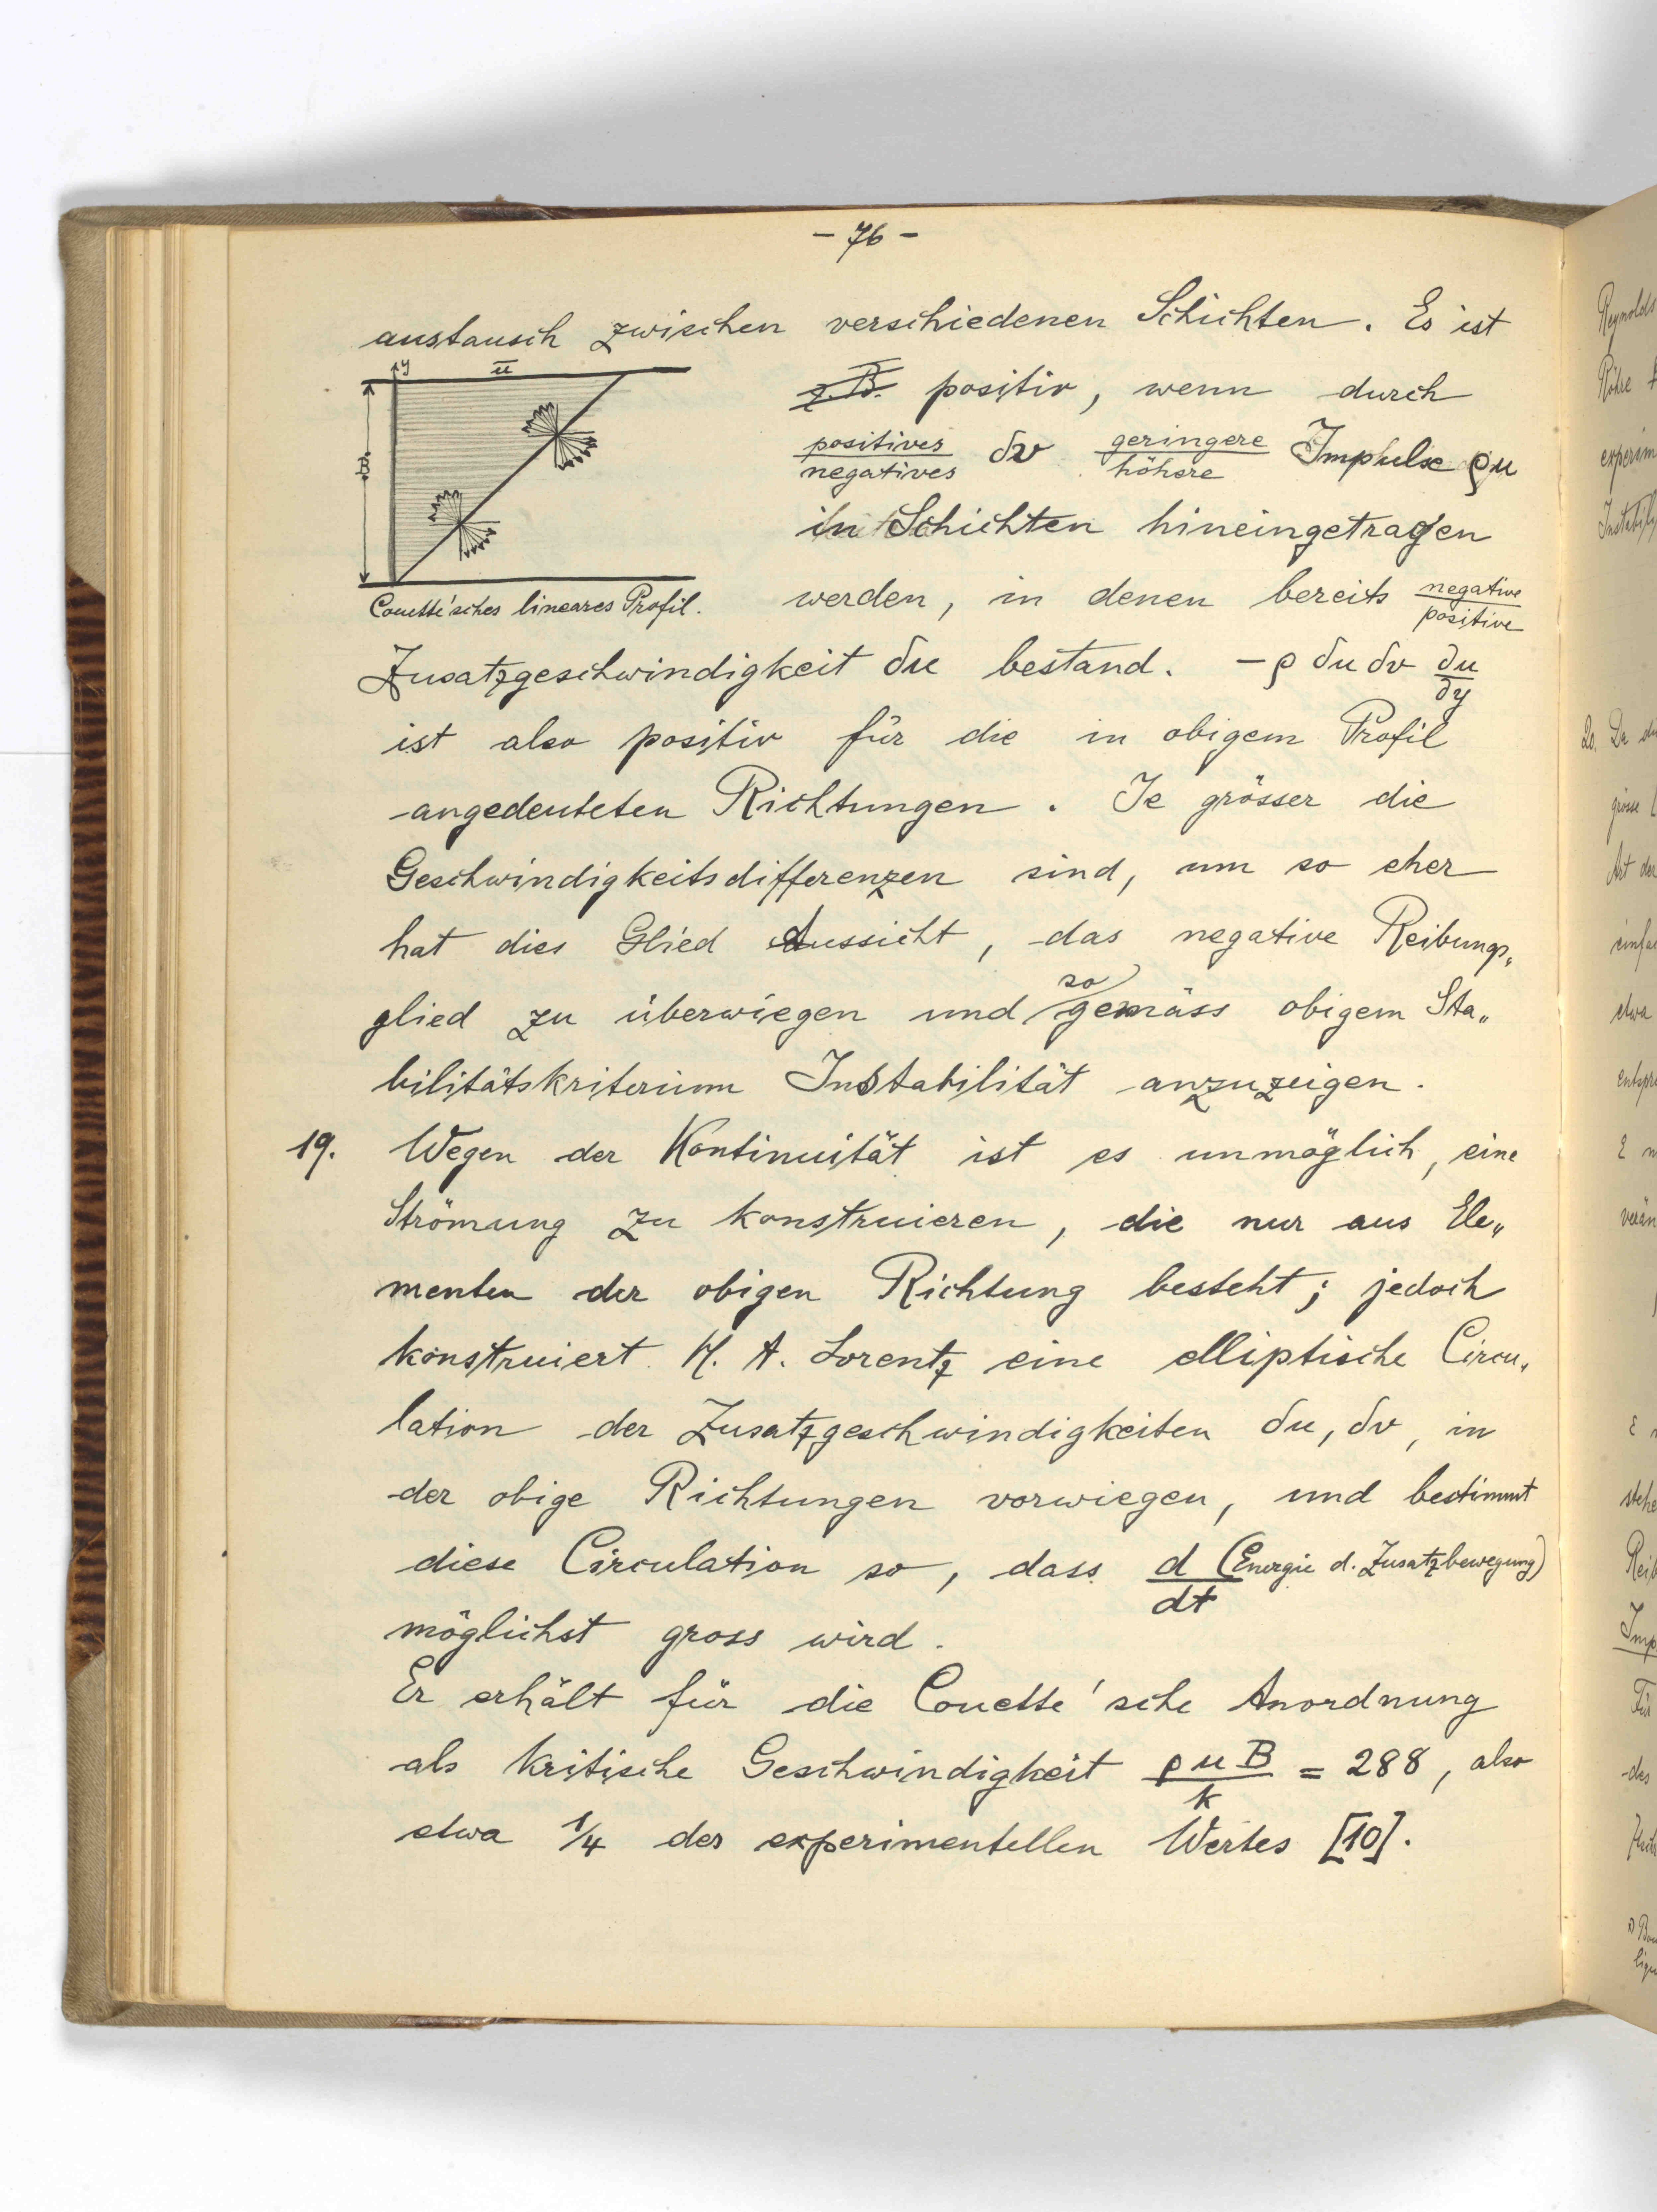 - 76 -
austausch zwischen verschiedenen Schichten. Es ist
y
u̅
B
Couette'sches lineares Profil.
z. B. positiv, wenn durch
positives/negatives δv geringere/höhere Impulse ρu
in Schichten hineingetragen
werden, in denen bereits negative/positive
Zusatzgeschwindigkeit δu bestand. -ρ δu δv ∂u/∂y
ist also positiv für die in obigem Profil
angedeuteten Richtungen. Je grösser die
Geschwindigkeitsdifferenzen sind, um so eher
hat dies Glied Aussicht, das negative Reibungs„
glied zu überwiegen und so gemäss obigem Sta„
bilitätskriterium Instabilität anzuzeigen.
19. Wegen der Kontinuität ist es unmöglich, eine
Strömung zu konstruieren, die nur aus Ele„
menten der obigen Richtung besteht; jedoch
konstruiert H. A. Lorentz eine elliptische Circu„
lation der Zusatzgeschwindigkeiten δu, δv, in
der obige Richtungen vorwiegen, und bestimmt
diese Circulation so, dass d/dt (Energie d. Zusatzbewegung)
möglichst gross wird.
Er erhält für die Couette'sche Anordnung
als kritische Geschwindigkeit ρuB/k = 288, also
etwa 1/4 des experimentellen Wertes [10].
Reynolds
20. Da